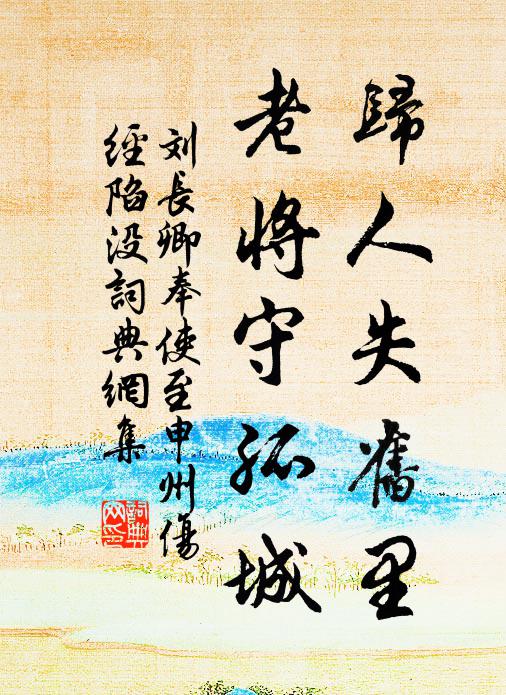 歸人失舊里
老將守孤城
刘長卿奉使至申州傷
經陷没詞典網集
詞典网印